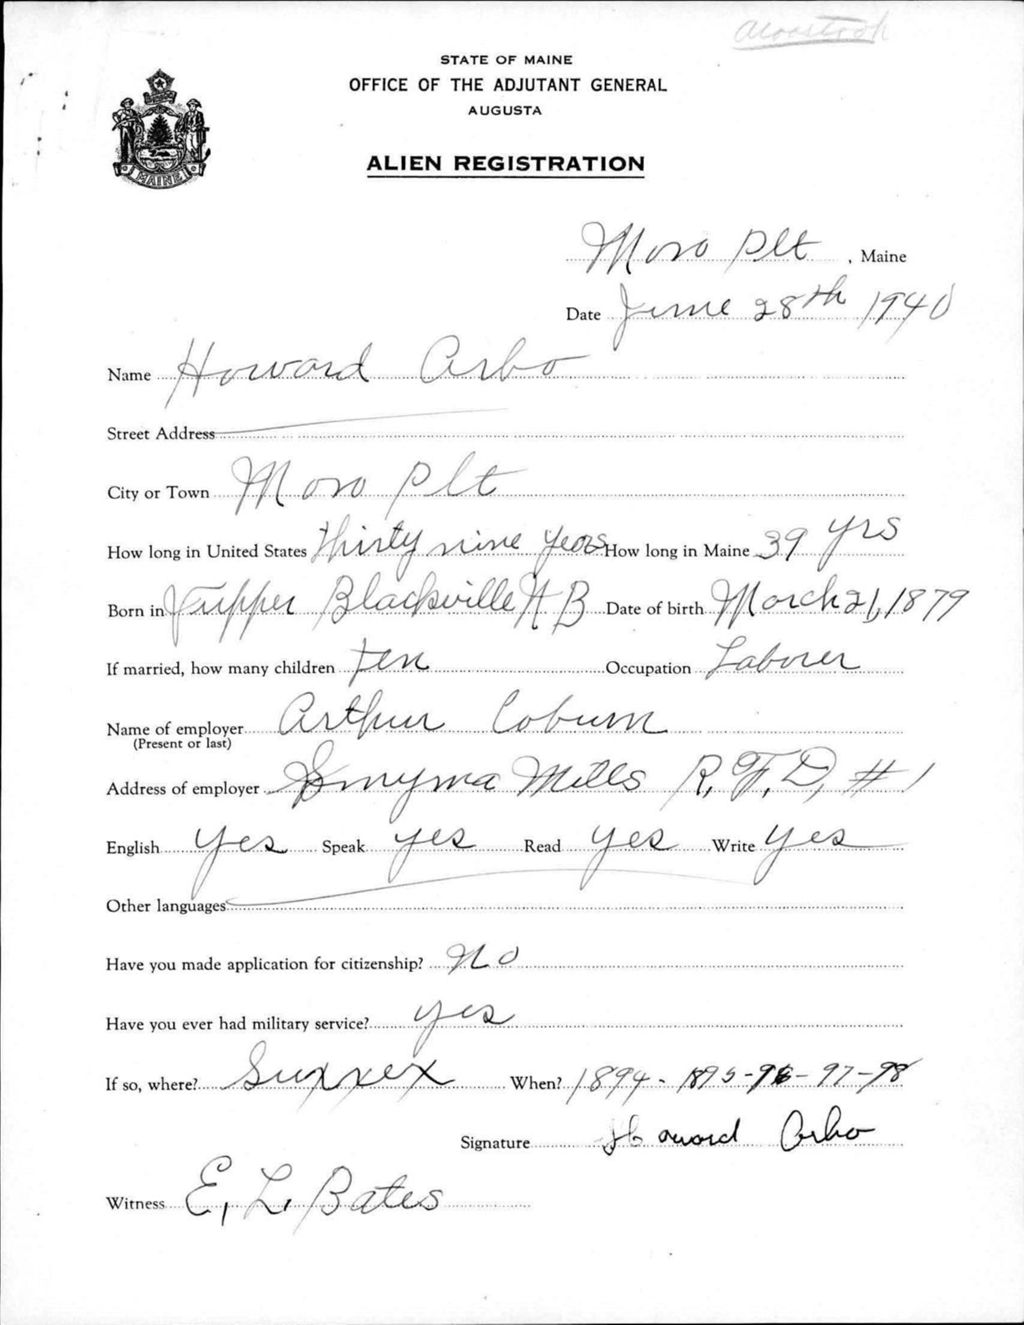 Aroostook
STATE OF MAINE
OFFICE OF THE ADJUTANT GENERAL
AUGUSTA
ALIEN REGISTRATION
MAINE
Moro Plt, Maine
Date June 28th 1940
Name Howard Arbo
Street Address
City or Town Moro Plt
How long in United States thirty nine years How long in Maine 39 yrs
Born in Blackville N B Date of birth March 21, 1879
If married, how many children ten Occupation Laborer
Name of employer Arthur Coburn
(Present or last)
Address of employer Smyrna Mills R, F, D, # 1
English yes Speak yes Read yes Write yes
Other languages
Have you made application for citizenship? No
Have you ever had military service? yes
If so, where? Sussex When? 1894 - 1895-96-97-98
Signature Howard Arbo
Witness E, L, Bates